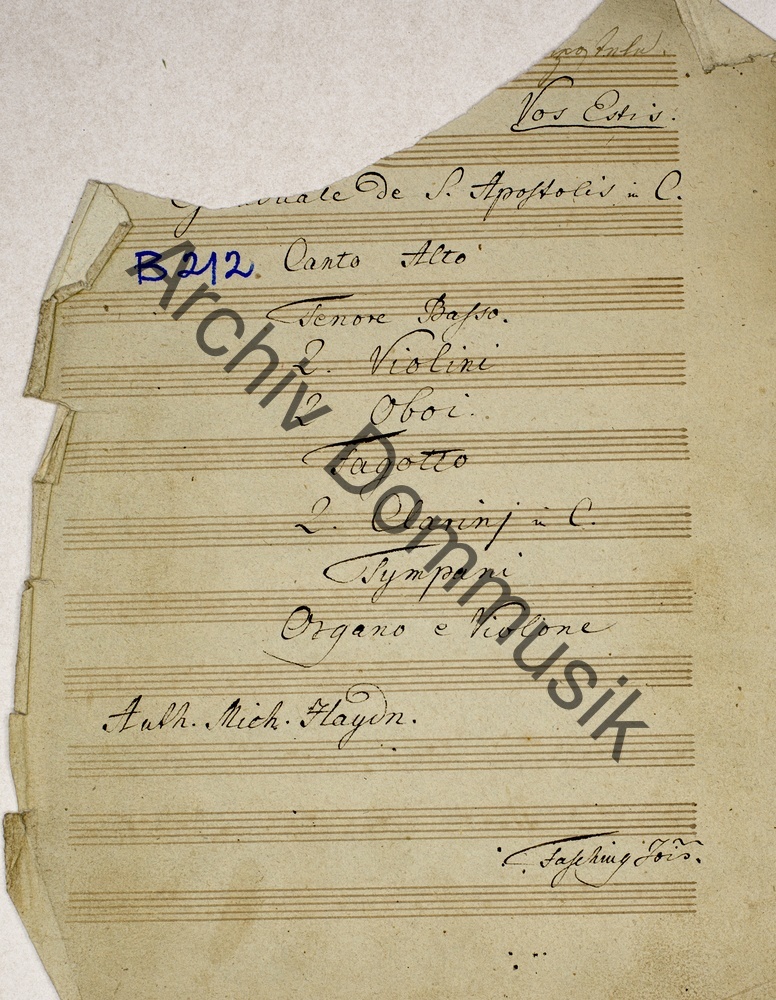 Vos Estis.
Graduale de S. Apostolis in C.
B 212 Canto Alto
Tenore Basso.
2. Violini
2 Oboi.
Fagotto
2. Clarinj in C.
Tympani
Organo e Violone
Auth. Mich. Haydn.
Fasching
Archiv Dommusik